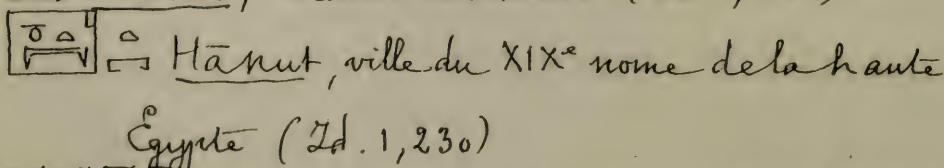 Hānut, ville du XIXe nome de la haute
Égypte (Id. 1,230)